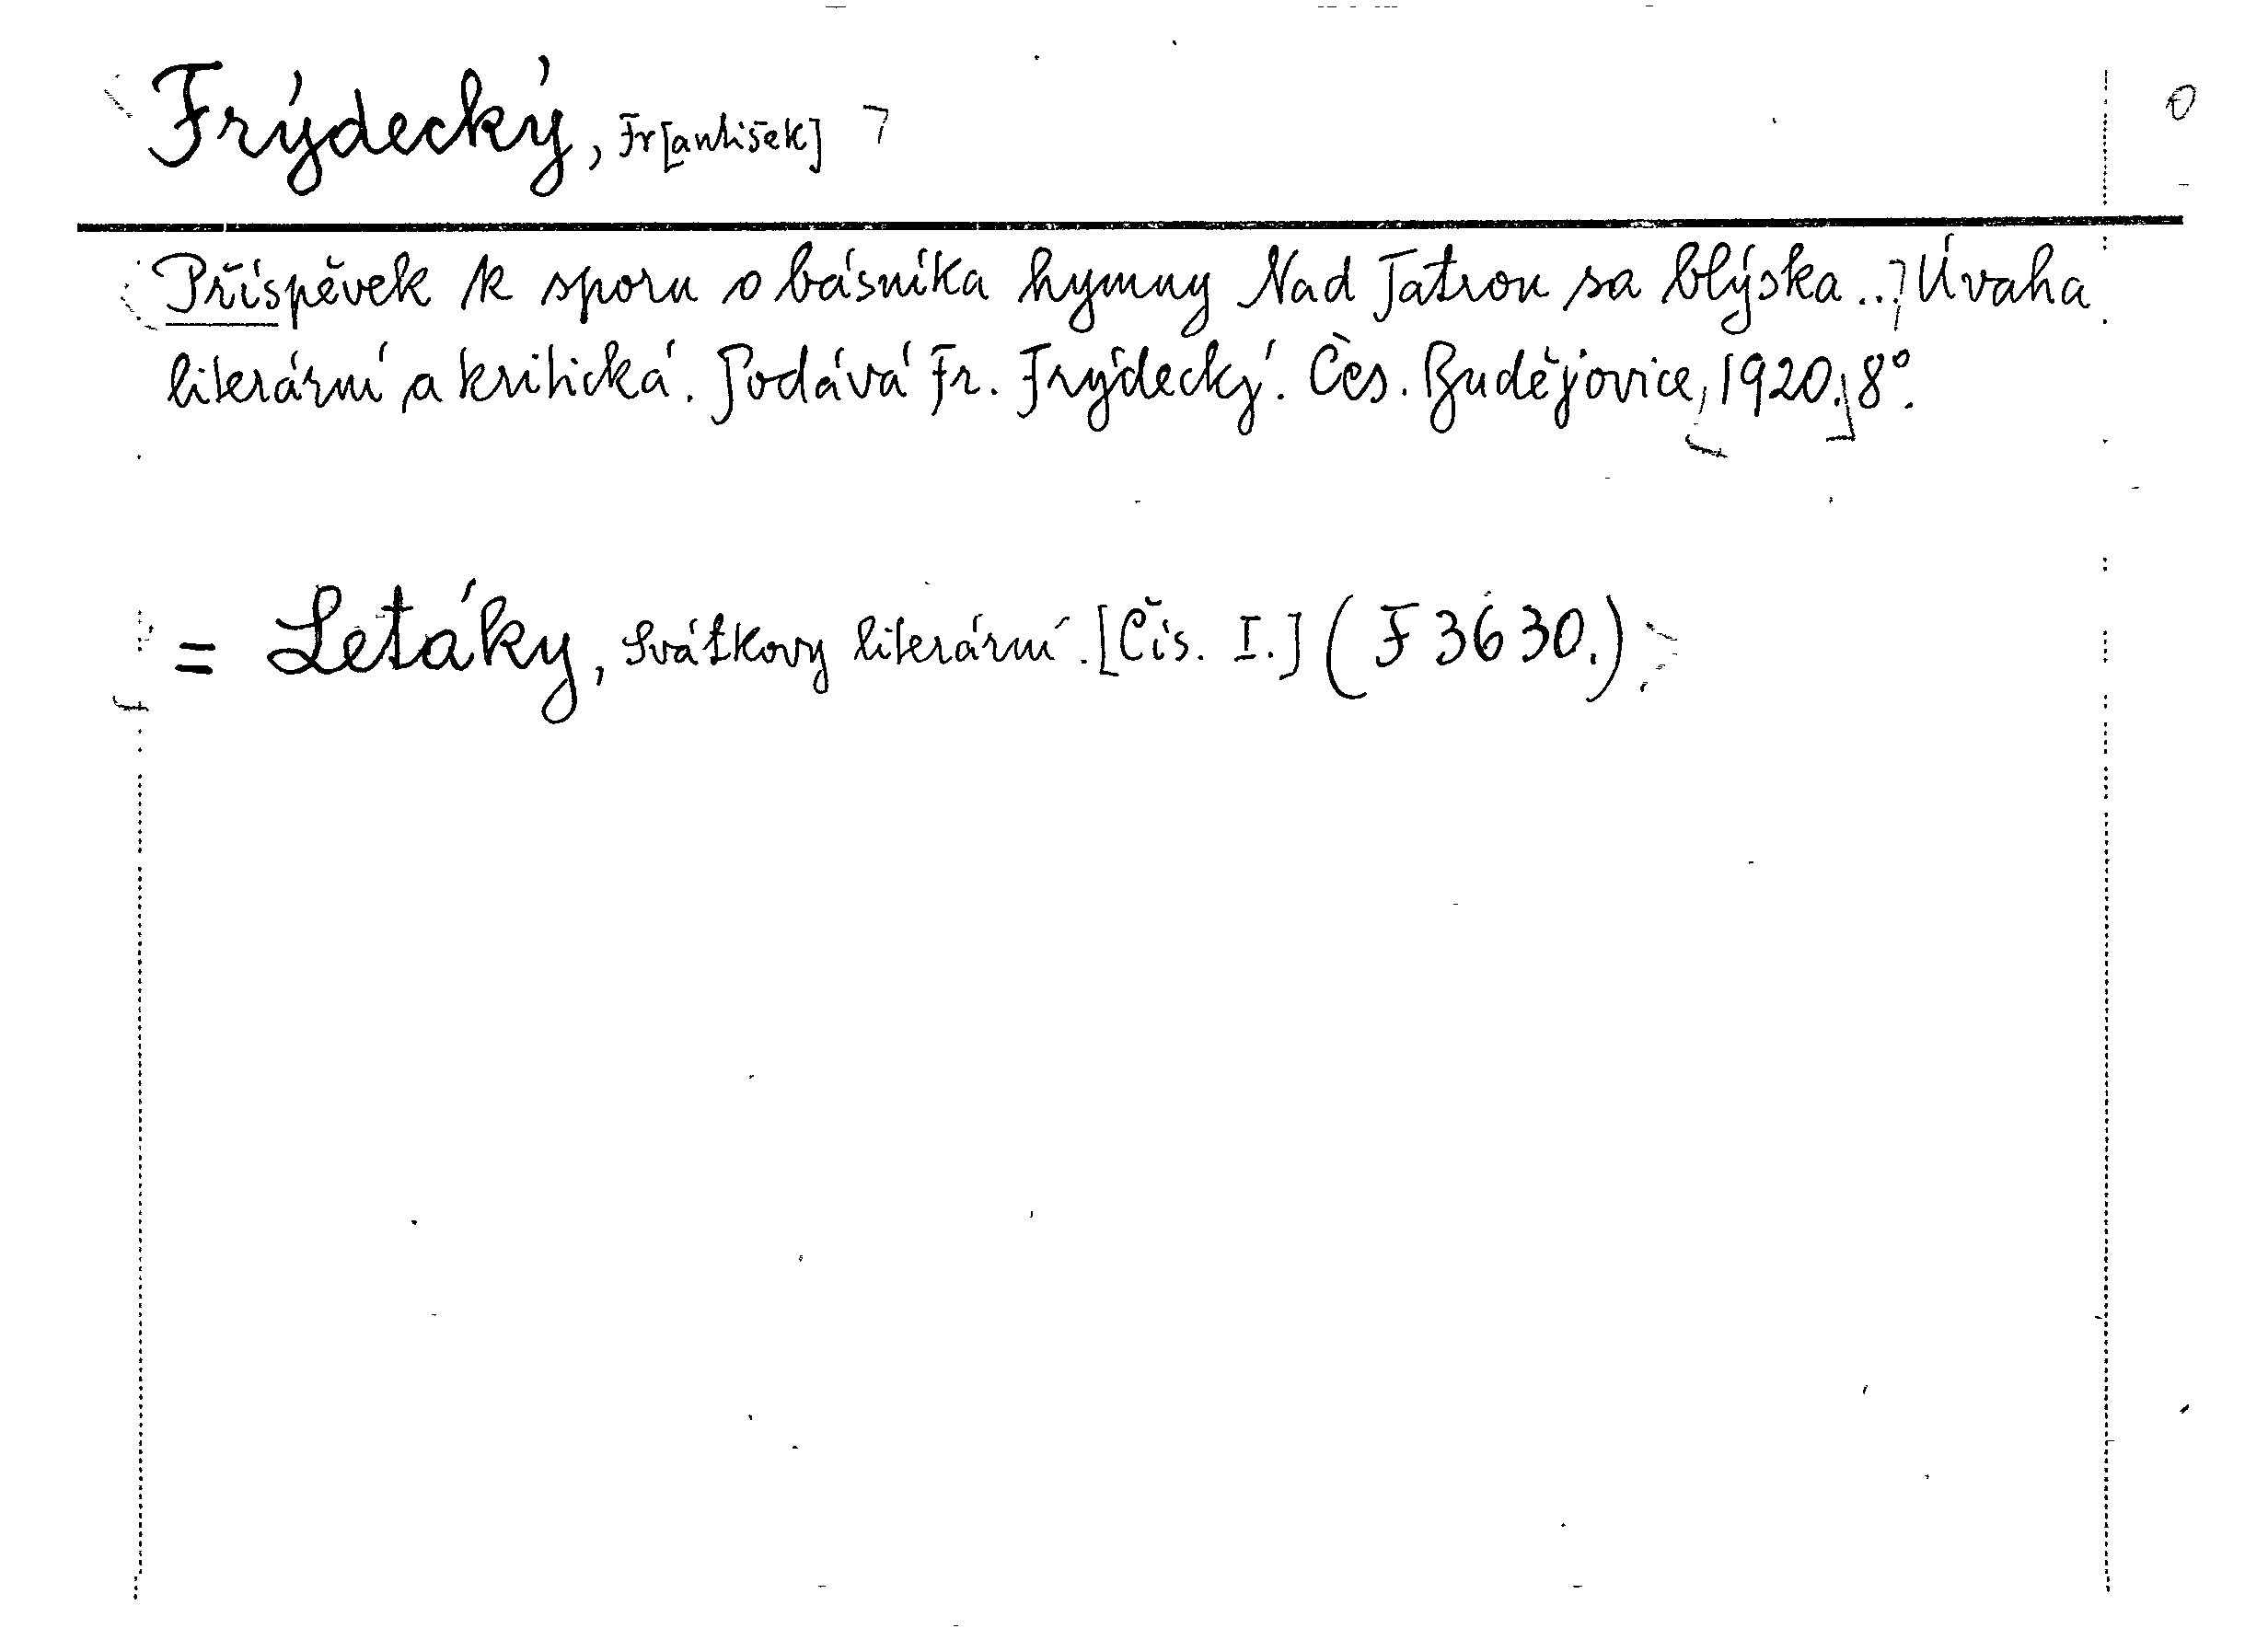 Frýdecký, Fr[antišek]
Příspěvek k sporu o básníka hymny Nad Tatrou sa blýska... Úvaha
literární a kritická. Podává Fr. Frýdecký. Čes. Budějovice, 1920. 8°.
= Letáky, Svátkovy literární. [Čís. I.] (F 3630.)